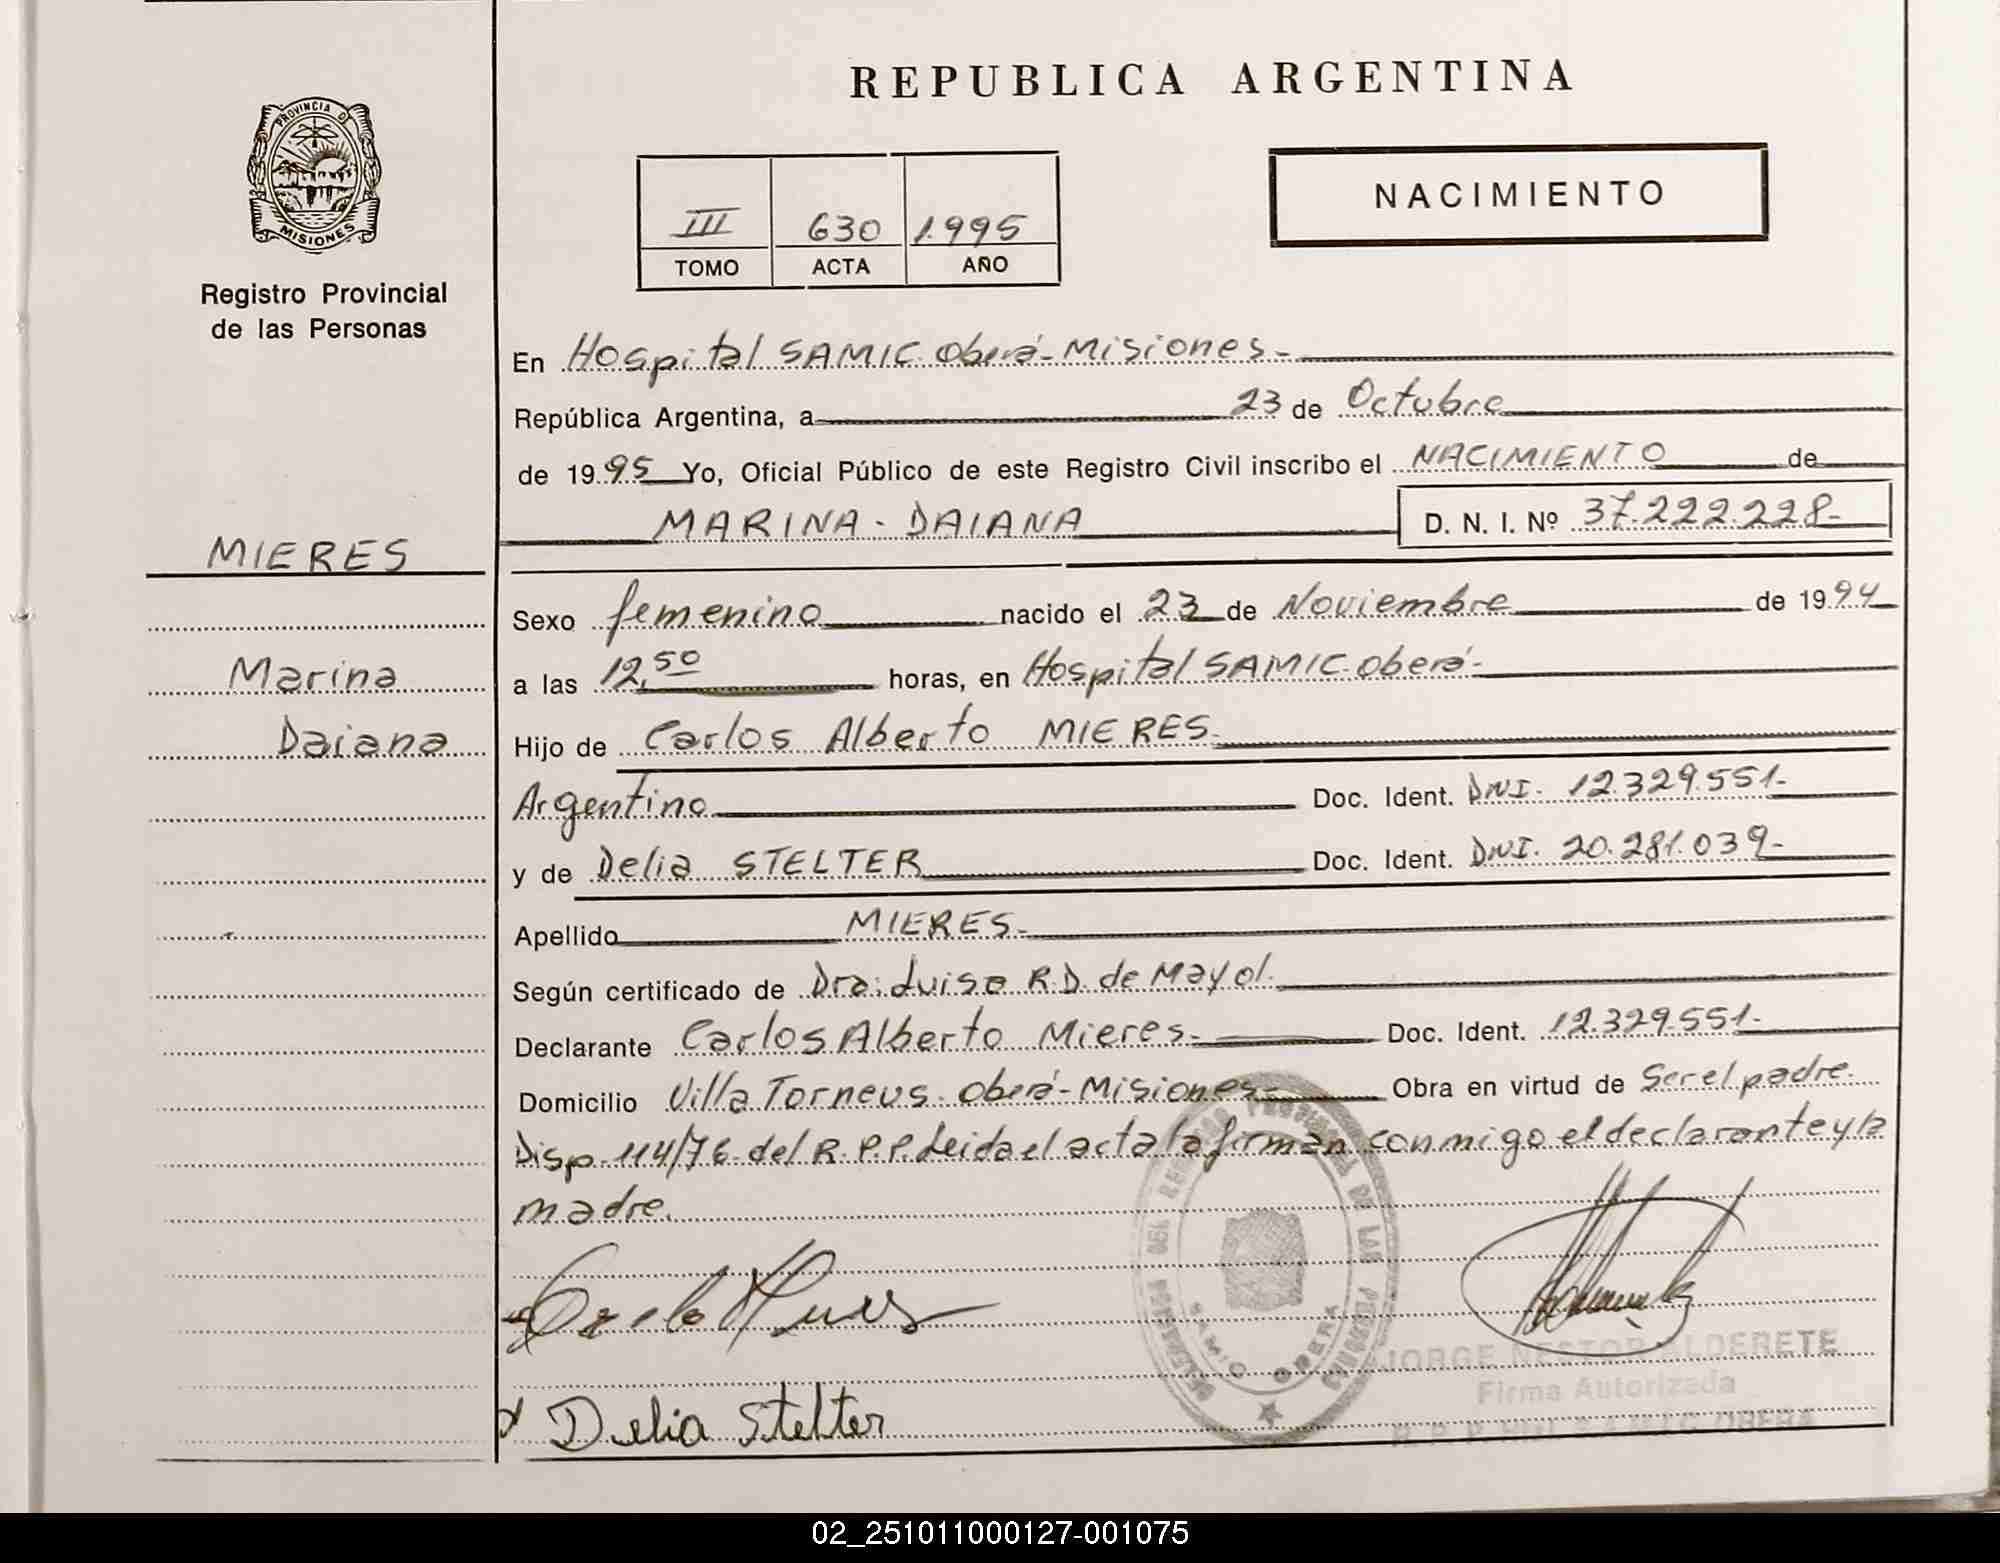 REPUBLICA ARGENTINA
PROVINCIA D
MISIONES
Registro Provincial
de las Personas
NACIMIENTO
III 630 1.995
TOMO ACTA AÑO
En Hospital SAMIC. Oberá-Misiones-
República Argentina, a 23 de Octubre
de 19 95 Yo, Oficial Público de este Registro Civil inscribo el NACIMIENTO de
MARINA - DAIANA D. N. I. Nº 37.222.228-
MIERES
Sexo femenino nacido el 23 de Noviembre de 19 94
Marina
a las 12,50 horas, en Hospital SAMIC. Oberá-
Daiana
Hijo de Carlos Alberto MIERES-
Argentino Doc. Ident. DNI. 12.329.551-
y de Delia STELTER Doc. Ident. DNI. 20.281.039-
Apellido MIERES-
Según certificado de Dra. Luisa R.D. de Mayol.
Declarante Carlos Alberto Mieres- Doc. Ident. 12.329.551-
Domicilio Villa Torneus. Oberá-Misiones- Obra en virtud de Ser el padre.
Disp. 114/76 del R.P.P. Leida el acta la firman conmigo el declarante y la
madre.
DE LAS PERSONAS
SAMIC OBERA
JORGE NESTOR ALDERETE
Firma Autorizada
Delia Stelter
02_251011000127-001075